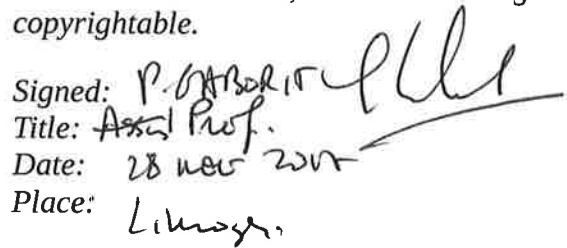 copyrightable.
Signed: P. GABORIT
Title: Prof.
Date: 28 nov
Place: Limoges.